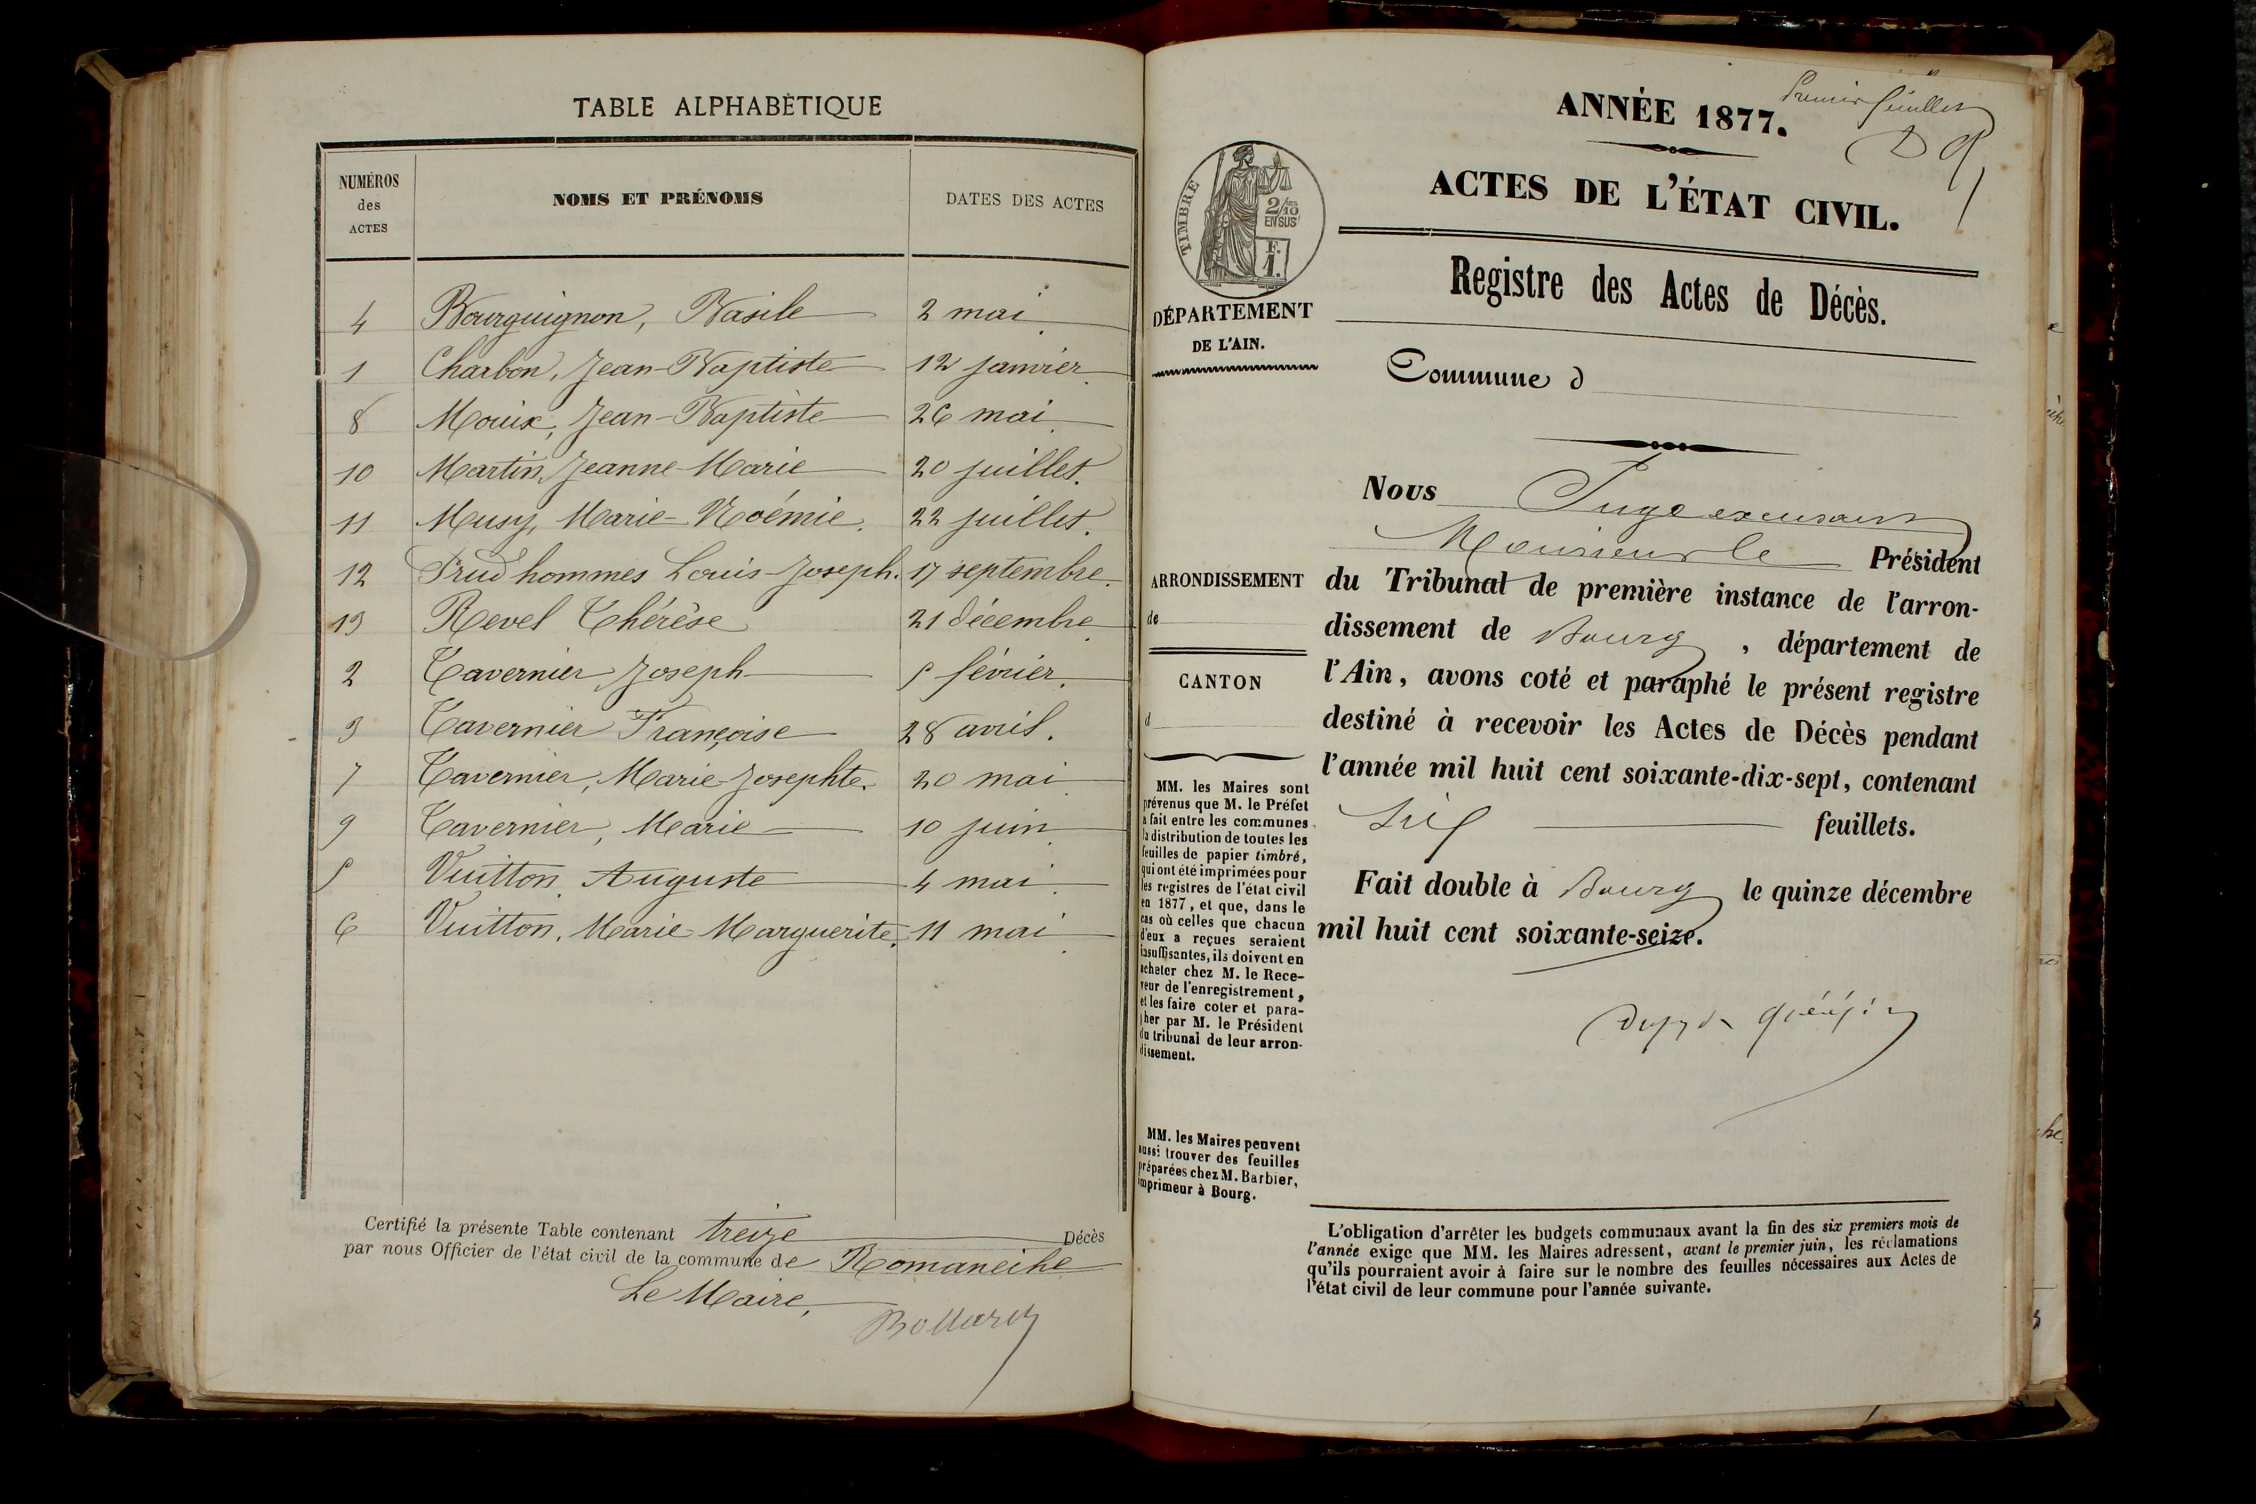 TABLE ALPHABÉTIQUE
NUMÉROS
des
ACTES
NOMS ET PRÉNOMS
DATES DES ACTES
4 Bourguignon, Basile 2 mai.
1 Charbon, Jean-Baptiste 12 janvier.
8 Mouix, Jean-Baptiste 26 mai.
10 Martin, Jeanne-Marie 20 juillet.
11 Musy, Marie-Noémie. 22 juillet.
12 Prud'hommes Louis-Joseph. 17 septembre.
13 Revel Thérèse 21 décembre.
2 Tavernier Joseph 5 février.
3 Tavernier Françoise 28 avril.
7 Tavernier, Marie-Josephte. 20 mai.
9 Tavernier, Marie 10 juin.
5 Vuitton, Auguste 4 mai.
6 Vuitton, Marie-Marguerite. 11 mai.
Certifié la présente Table contenant treize Décès
par nous Officier de l'état civil de la commune de Romaneche
Le Maire,
Premier feuillet
ANNÉE 1877.
ACTES DE L'ÉTAT CIVIL.
TIMBRE
2/10
EN SUS
F.
1.
DÉPARTEMENT
DE L'AIN.
Registre des Actes de Décès.
Commune d
ARRONDISSEMENT
de
CANTON
d
MM. les Maires sont
prévenus que M. le Préfet
a fait entre les communes
la distribution de toutes les
feuilles de papier timbré,
qui ont été imprimées pour
les registres de l'état civil
en 1877, et que, dans le
cas où celles que chacun
d'eux a reçues seraient
insuffisantes, ils doivent en
acheter chez M. le Rece-
veur de l'enregistrement,
et les faire coter et para-
pher par M. le Président
du tribunal de leur arron-
dissement.
MM. les Maires peuvent
aussi trouver des feuilles
préparées chez M. Barbier,
imprimeur à Bourg.
Nous Juge excusant
Monsieur le Président
du Tribunal de première instance de l'arron-
dissement de Bourg, département de
l'Ain, avons coté et paraphé le présent registre
destiné à recevoir les Actes de Décès pendant
l'année mil huit cent soixante-dix-sept, contenant
six feuillets.
Fait double à Bourg le quinze décembre
mil huit cent soixante-seize.
L'obligation d'arrêter les budgets communaux avant la fin des six premiers mois de
l'année exige que MM. les Maires adressent, avant le premier juin, les réclamations
qu'ils pourraient avoir à faire sur le nombre des feuilles nécessaires aux Actes de
l'état civil de leur commune pour l'année suivante.